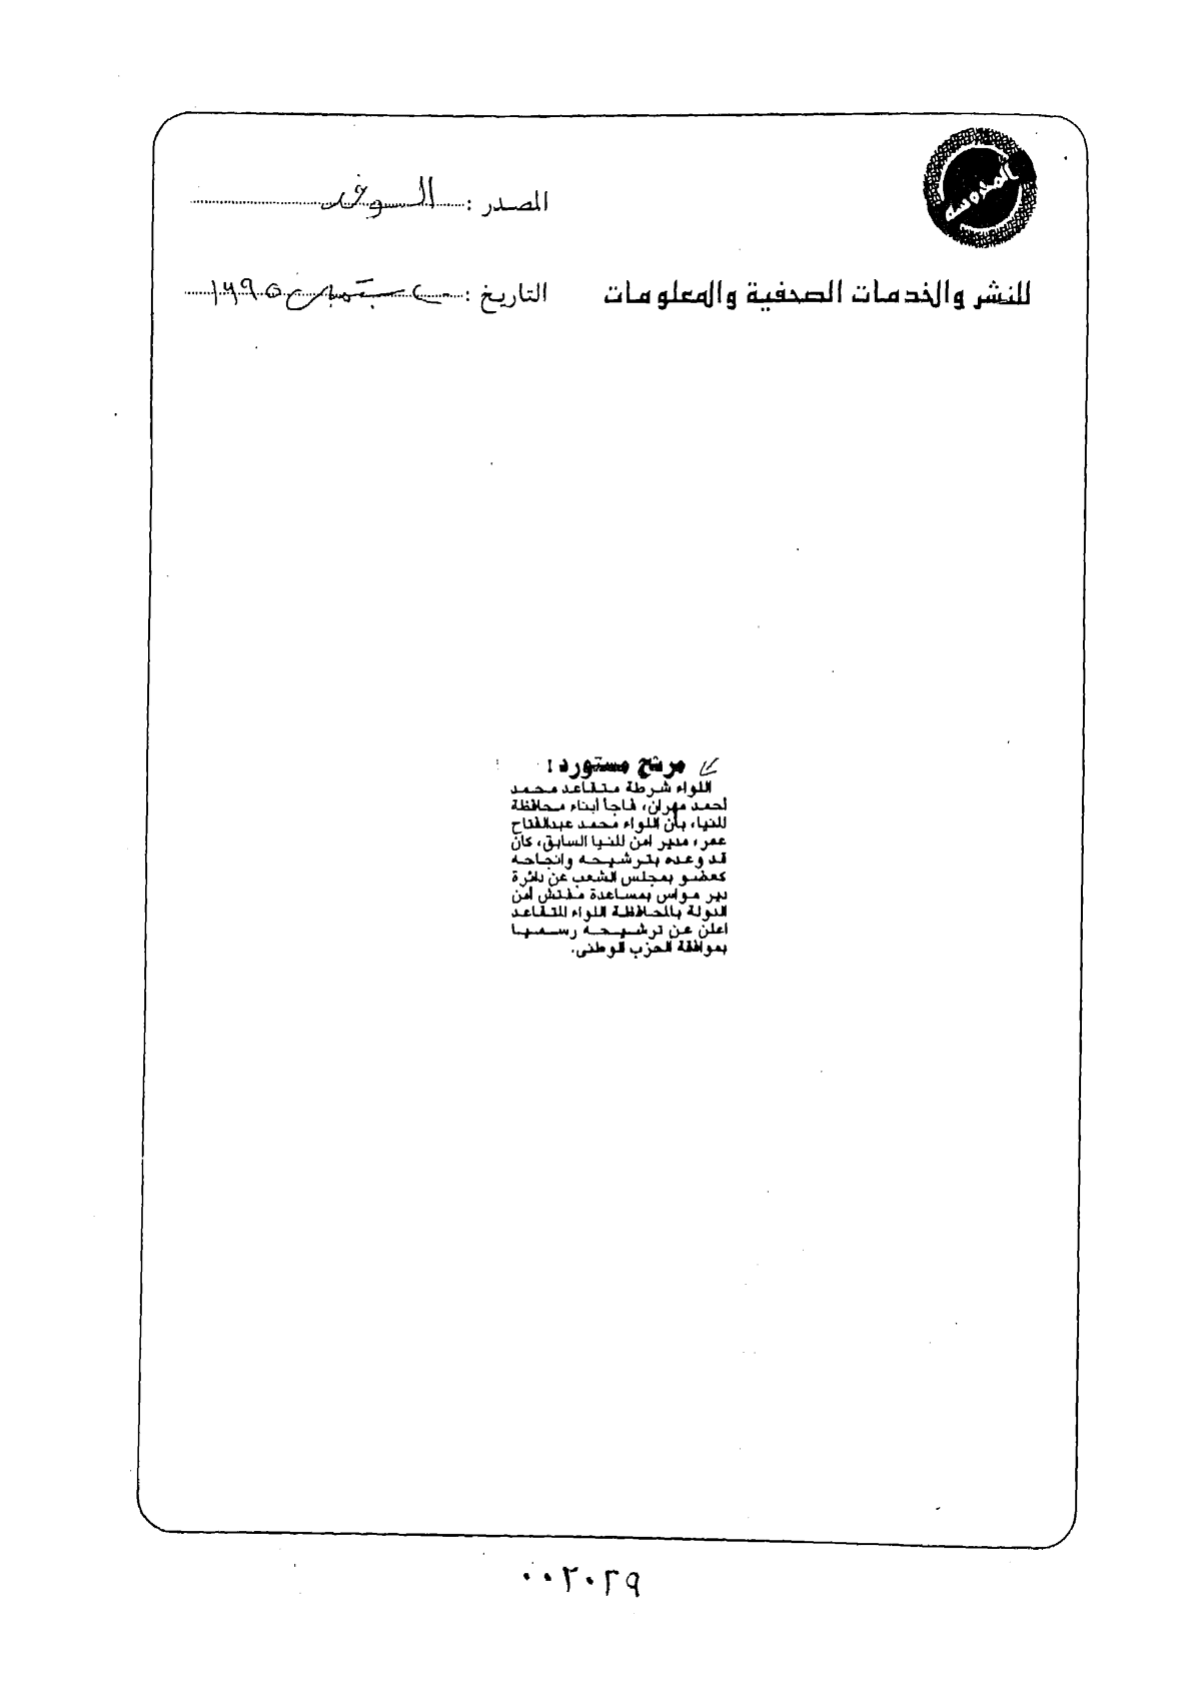 المحروسة
المصدر : الوفد
للنشر والخدمات الصحفية والمعلومات
التاريخ : سبتمبر ١٩٩٥
مرشح مستورد !
اللواء شرطة متقاعد محمد
أحمد مهران، فاجأ أبناء محافظة
المنيا، بأن اللواء محمد عبدالفتاح
عمر، مدير أمن المنيا السابق، كان
قد وعده بترشيحه وإنجاحه
كعضو بمجلس الشعب عن دائرة
دير مواس بمساعدة مفتش أمن
الدولة بالمحافظة اللواء المتقاعد
أعلن عن ترشيحه رسميا
بموافقة الحزب الوطني.
٠٠٢٠٢٩